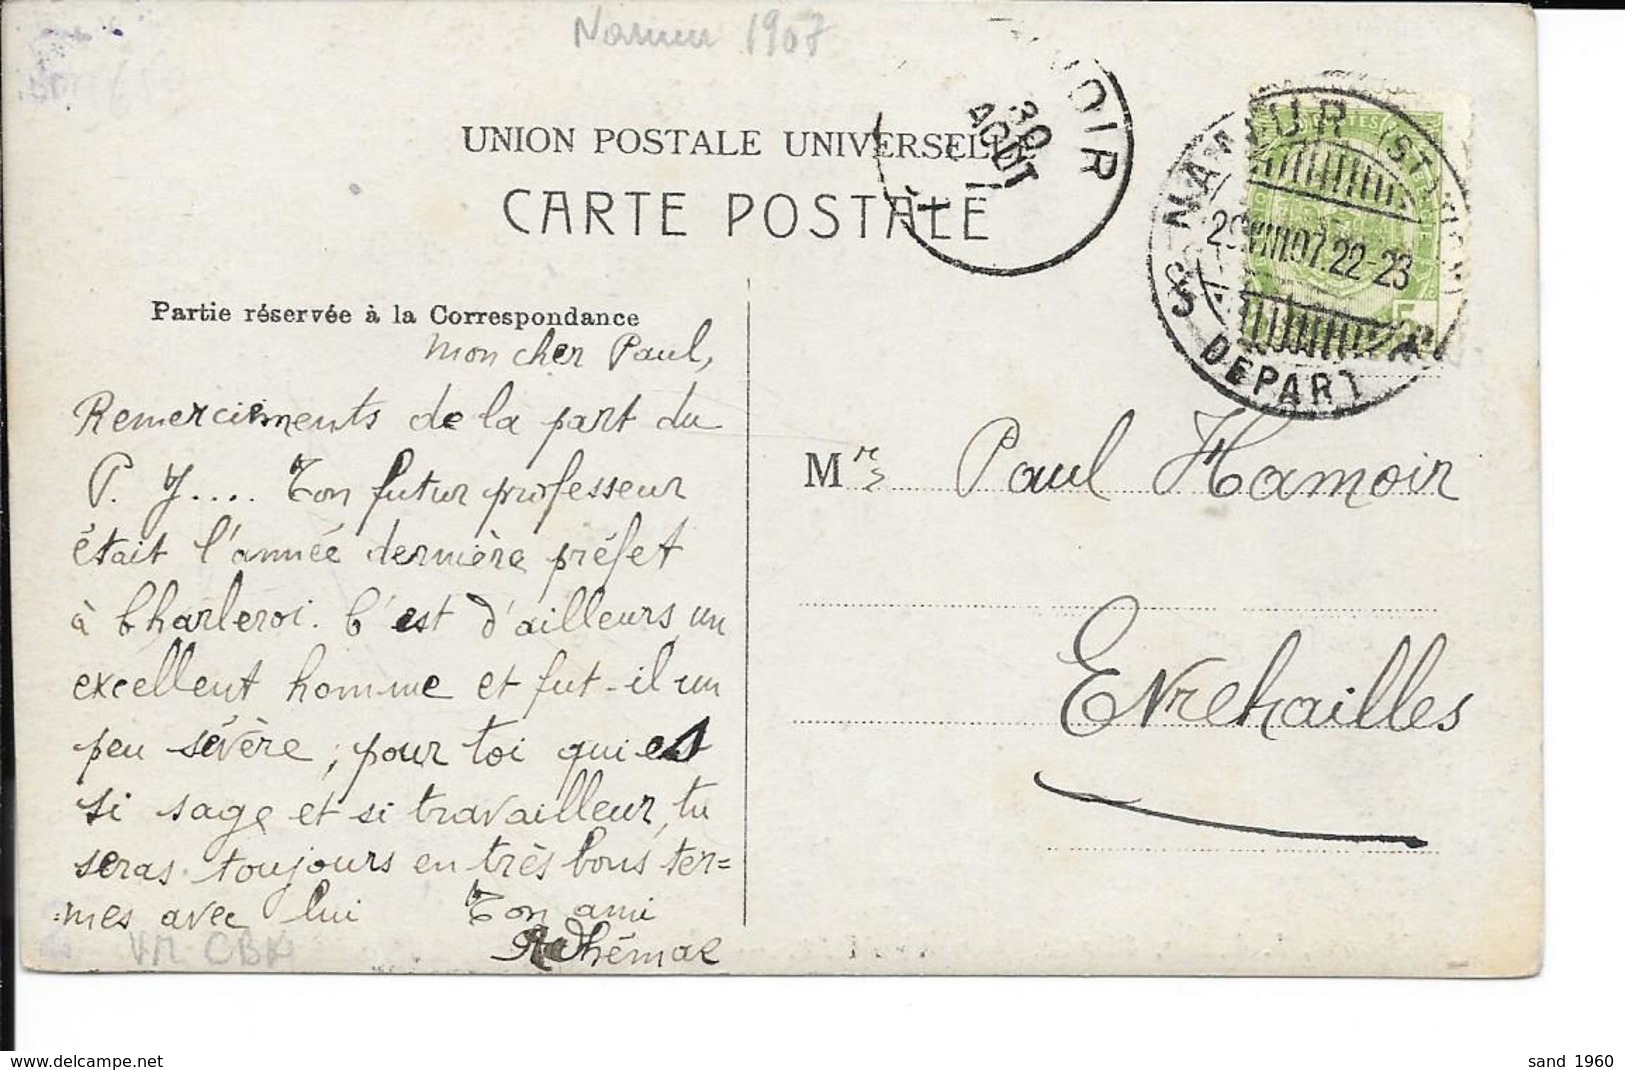 Namur 1907
UNION POSTALE UNIVERSELLE
CARTE POSTALE
OIR
30
AOUT
NAMUR (STATION)
29 VIII.07.22-23
DEPART
5
Partie réservée à la Correspondance
Mon cher Paul,
Remerciements de la part du
P. Y.... Ton futur professeur
était l'année dernière préfet
à Charleroi. C'est d'ailleurs un
excellent homme et fut-il un
peu sévère, pour toi qui es
si sage et si travailleur, tu
seras toujours en très bons ter=
=mes avec lui Ton ami
Adhémar
Mr Paul Hamoir
Evrehailles
www.delcampe.net
sand_1960